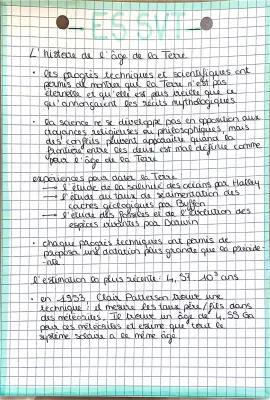 - ES SVT -
L'histoire de l'âge de la Terre
• les progrès techniques et scientifiques ont
permis de montrer que la Terre n'est pas
éternelle et qu'elle est plus vieille que ce
qu'annonçaient les récits mythologiques.
• la science ne se développe pas en opposition aux
croyances religieuses ou philosophiques, mais
des conflits peuvent apparaître quand la
frontière entre les deux est mal définie comme
pour l'âge de la Terre
expériences pour dater la Terre
→ l'étude de la salinité des océans par Halley
→ l'étude du taux de sédimentation des
couches géologiques par Buffon
→ l'étude des fossiles et de l'évolution des
espèces vivantes par Darwin
• chaque progrès techniques ont permis de
proposer une datation plus grande que la précéde
-nte
l'estimation la plus récente : 4,57 10⁹ ans
• en 1953, Clair Patterson trouve une
technique : il mesure les taux père/fils dans
des météorites. Il trouve un âge de 4,55 Ga
pour ces météorites et estime que tout le
système solaire a le même âge.